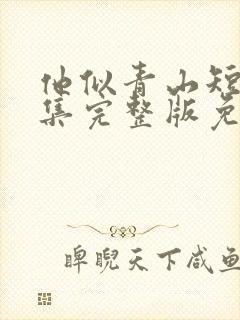 他似青山短
集完整版免
睥睨天下咸鱼